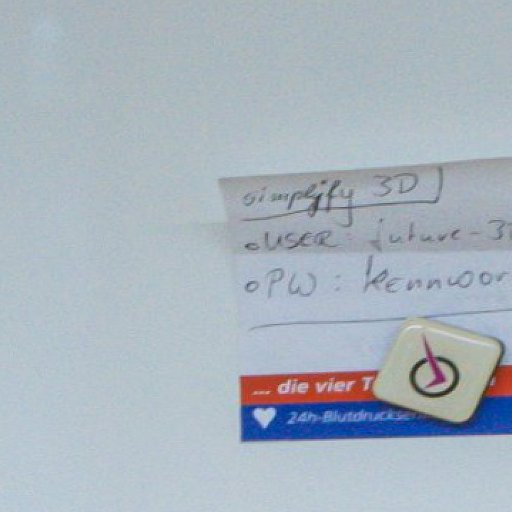 simplify 3D
o USER: future-3D
o PW: Kennwor
... die vier T
24h-Blutdruckse